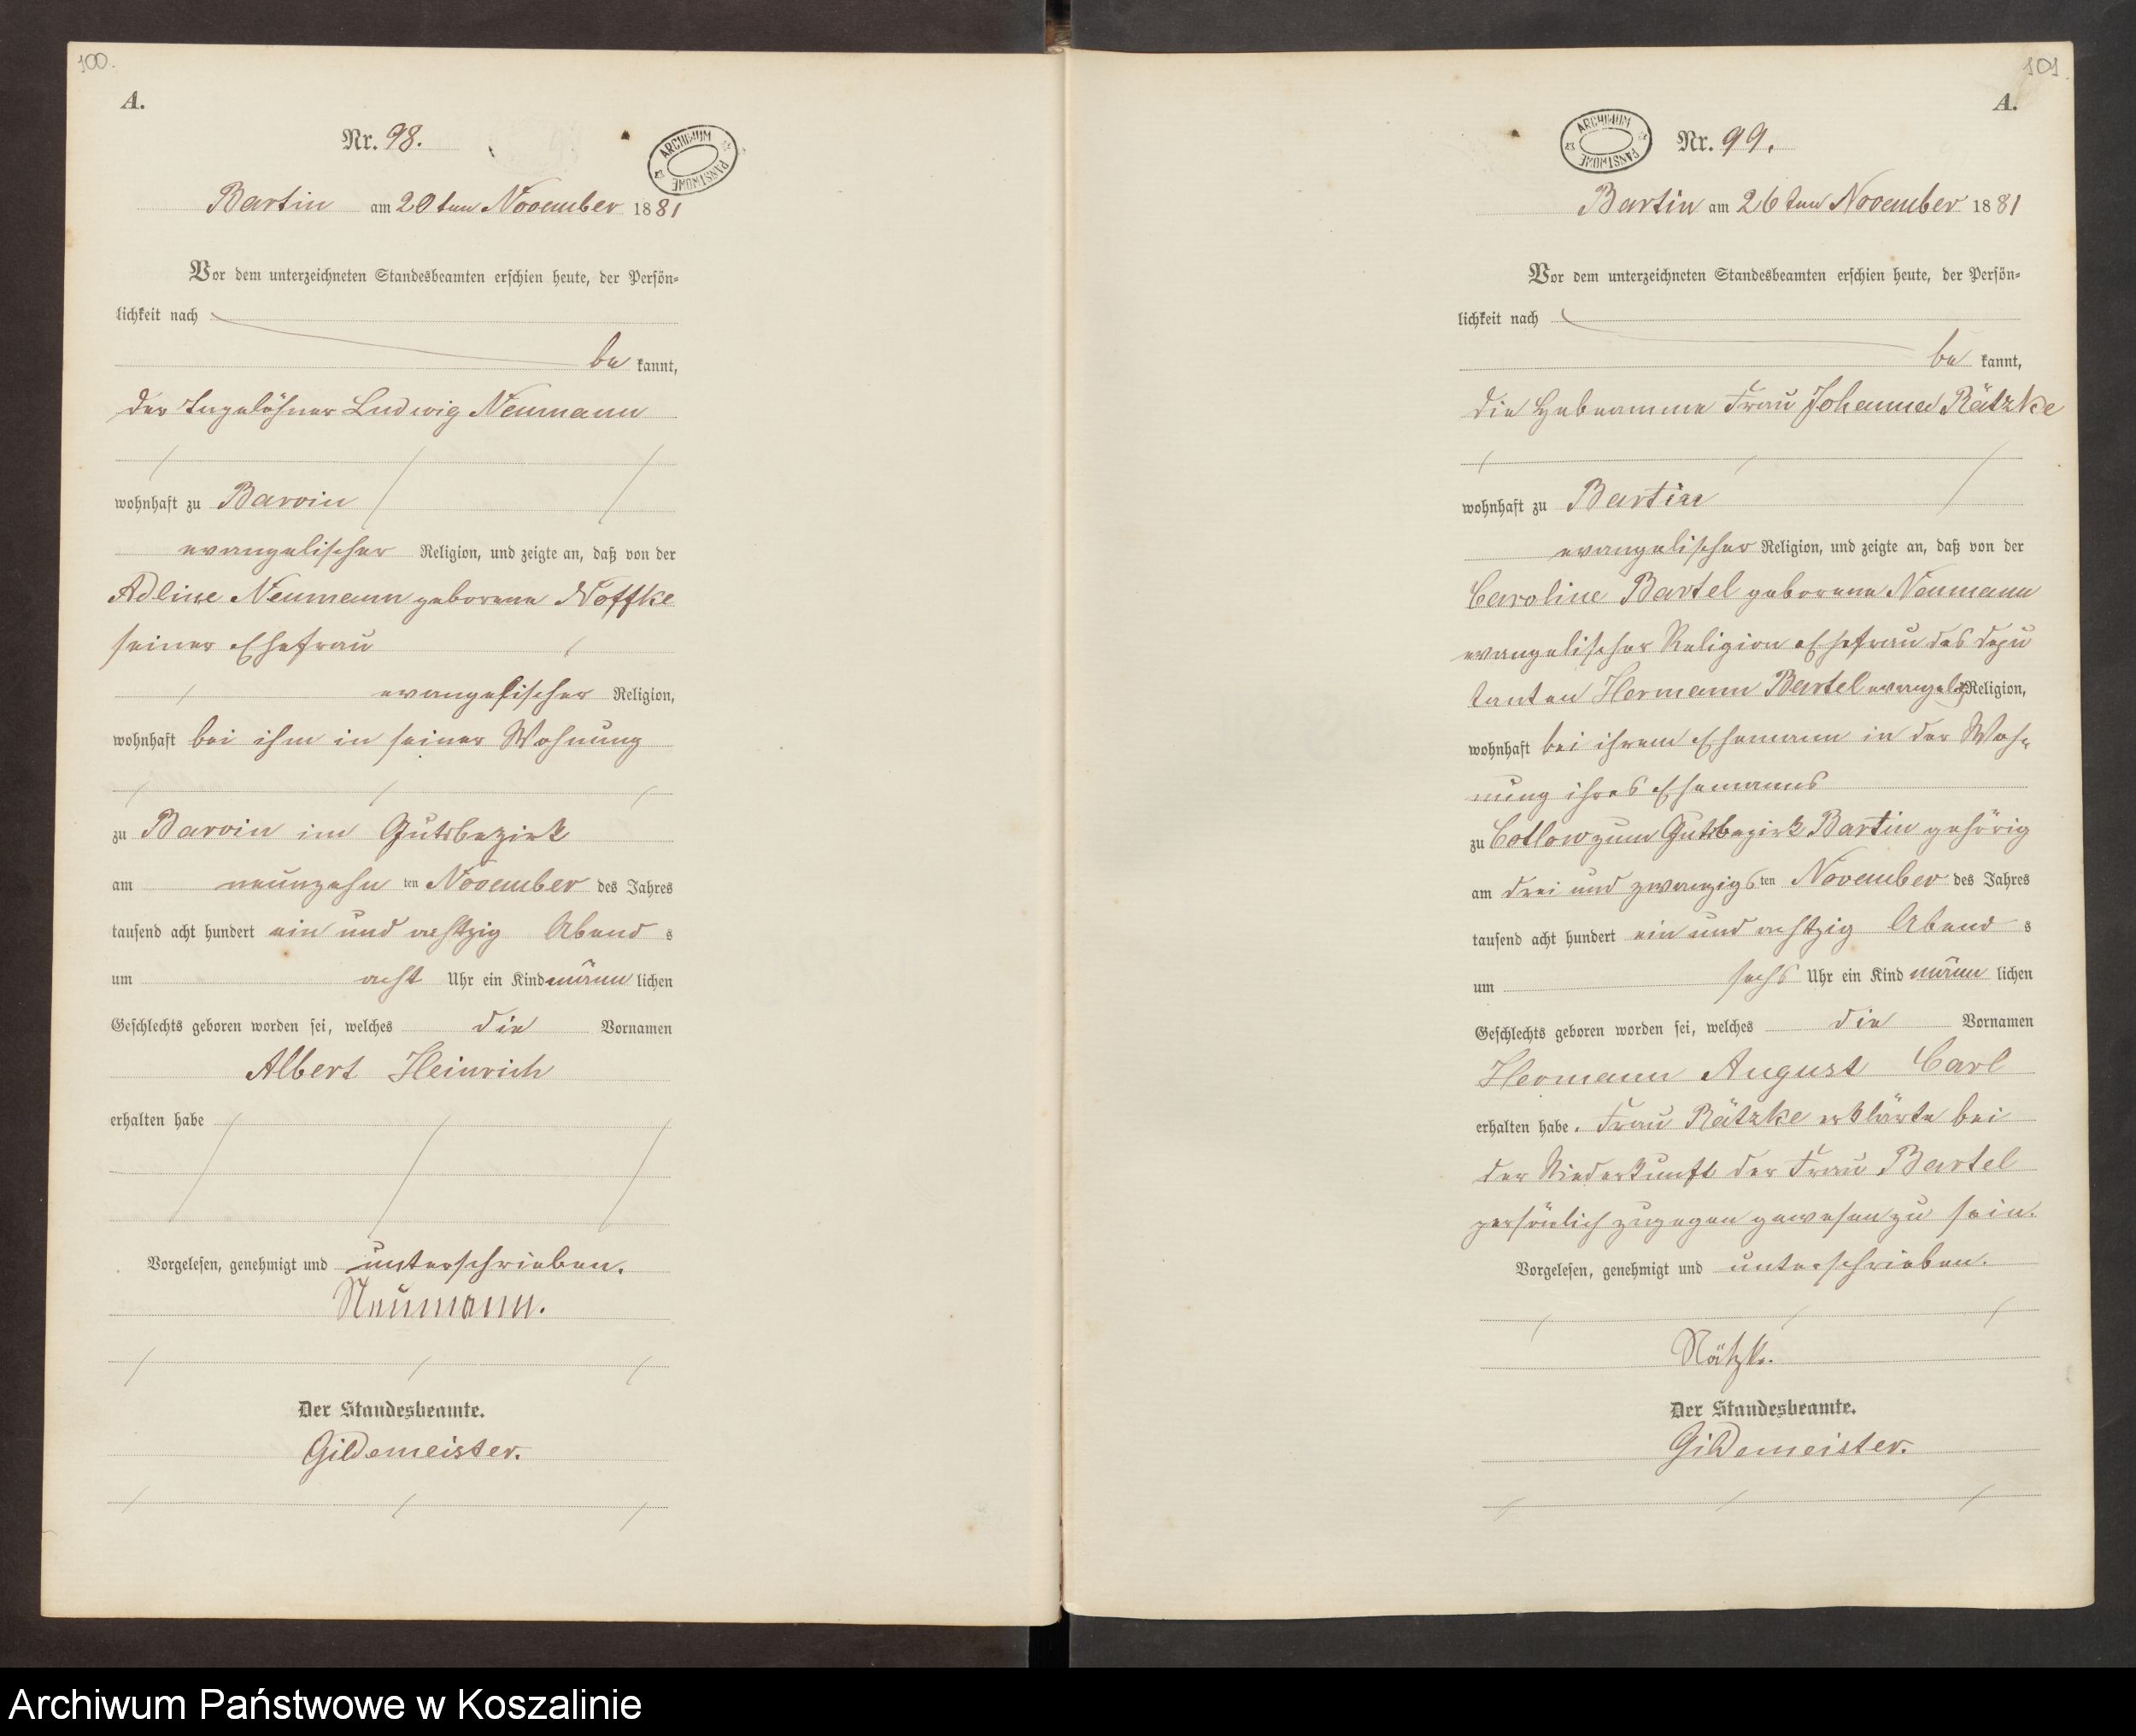 100.
A.
Nr. 98.
ARCHIWUM PAŃSTWOWE
Bartin am 20ten November 1881
Vor dem unterzeichneten Standesbeamten erschien heute, der Persön-
lichkeit nach
be kannt,
der Tagelöhner Ludwig Neumann
wohnhaft zu Barvin
evangelischer Religion, und zeigte an, daß von der
Adline Neumann geborene Noffke
seiner Ehefrau
evangelischer Religion,
wohnhaft bei ihm in seiner Wohnung
zu Barvin im Gutsbezirk
am neunzehn ten November des Jahres
tausend acht hundert ein und achtzig Abend s
um acht Uhr ein Kind männ lichen
Geschlechts geboren worden sei, welches die Vornamen
Albert Heinrich
erhalten habe
Vorgelesen, genehmigt und unterschrieben.
Neumann.
Der Standesbeamte.
Gildemeister.
101
A.
ARCHIWUM PAŃSTWOWE
Nr. 99.
Bartin am 26ten November 1881
Vor dem unterzeichneten Standesbeamten erschien heute, der Persön-
lichkeit nach
be kannt,
die Hebeamme Frau Johanna Rätzke
wohnhaft zu Bartin
evangelischer Religion, und zeigte an, daß von der
Caroline Bartel geborene Neumann
evangelischer Religion Ehefrau des Depu
tanten Hermann Bartel evangel. Religion,
wohnhaft bei ihrem Ehemann in der Woh-
nung ihres Ehemanns
zu Cottow zum Gutsbezirk Bartin gehörig
am drei und zwanzigs ten November des Jahres
tausend acht hundert ein und achtzig Abend s
um sechs Uhr ein Kind männ lichen
Geschlechts geboren worden sei, welches die Vornamen
Hermann August Carl
erhalten habe. Frau Rätzke erklärte bei
der Niederkunft der Frau Bartel
persönlich zugegen gewesen zu sein.
Vorgelesen, genehmigt und unterschrieben.
Rätzke.
Der Standesbeamte.
Gildemeister.
Archiwum Państwowe w Koszalinie